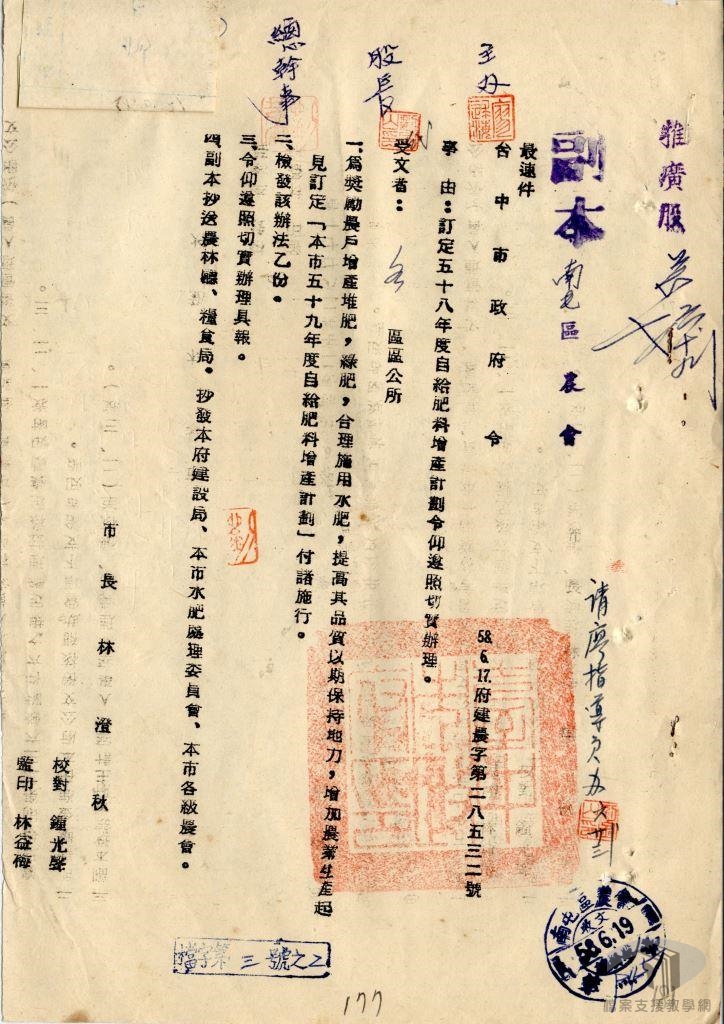 推廣股
副本
南屯區農會
最速件
台中市政府令
58.6.17.府建農字第二八五三二號
事由：訂定五十八年度自給肥料增產計劃令仰遵照切實辦理。
受文者：各區區公所
一、為獎勵農戶增產堆肥，綠肥，合理施用水肥，提高其品質以期保持地力，增加農業生產起
見訂定「本市五十九年度自給肥料增產計劃」付諸施行。
二、檢發該辦法乙份。
三、令仰遵照切實辦理具報。
四、副本抄送農林廳、糧食局。抄發本府建設局、本市水肥處理委員會、本市各級農會。
市長林澄秋
校對 鍾光聲
監印 林益梅
股長
總幹事
請廖指導員办
南屯區農會
收文
58.6.19
檔字第三號之2
177
檔案支援教學網